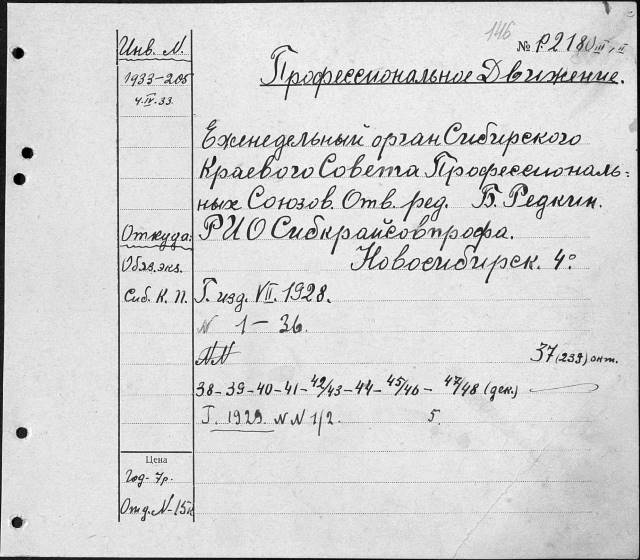 146
№ P2180 III, II
Инв. N.
Профессиональное Движение.
1933-206
4.IV.33
Еженедельный орган Сибирского
Краевого Совета Профессиональ=
ных Союзов. Отв. ред. Б. Редкин.
Откуда:
РИО Сибкрайсовпрофа.
Новосибирск. 4°
Обяз. экз.
Сиб. К. П.
Г. изд. VII. 1928.
N 1-36.
NN 37 (239) окт.
38-39-40-41-42/43-44-45/46-47/48 (дек.)
Г. 1929. NN 1/2. 5.
Цена
Год- 7р.
Отд. N-15к